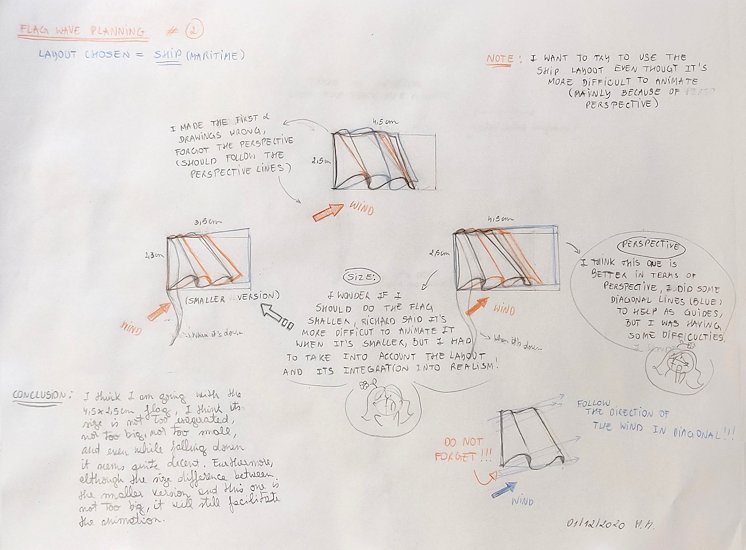 FLAG WAVE PLANNING # 2
LAYOUT CHOSEN = SHIP (MARITIME)
NOTE: I WANT TO TRY TO USE THE
SHIP LAYOUT EVEN THOUGT IT'S
MORE DIFFICULT TO ANIMATE
(MAINLY BECAUSE OF
PERSPECTIVE)
I MADE THE FIRST 2
DRAWINGS WRONG,
FORGOT THE PERSPECTIVE
(SHOULD FOLLOW THE
PERSPECTIVE LINES)
4,5cm
2,5cm
WIND
3,5cm
1,3cm
(SMALLER VERSION)
WIND
when it's down
SIZE:
I WONDER IF I
SHOULD DO THE FLAG
SMALLER, RICHARD SAID IT'S
MORE DIFFICUT TO ANIMATE IT
WHEN IT'S SMALLER, BUT I HAD
TO TAKE INTO ACCOUNT THE LAYOUT
AND ITS INTEGRATION INTO REALISM!
4,5cm
2,5cm
WIND
when it's down
PERSPECTIVE
I THINK THIS ONE IS
BETTER IN TERMS OF
PERSPECTIVE, I DID SOME
DIAGONAL LINES (BLUE)
TO HELP AS GUIDES,
BUT I WAS HAVING
SOME DIFFICULTIES
CONCLUSION: I think I am going with the
4,5x2,5cm flag, I think its
size is not too
not too big, not too small,
and even while falling down
it seems quite decent. Furthermore,
although the size difference between
the smaller version and this one is
not too big, it will still facilitate
the animation.
DO NOT
FORGET!!!
FOLLOW
THE DIRECTION OF
THE WIND IN DIAGONAL!!!
WIND
01/12/2020 M.M.